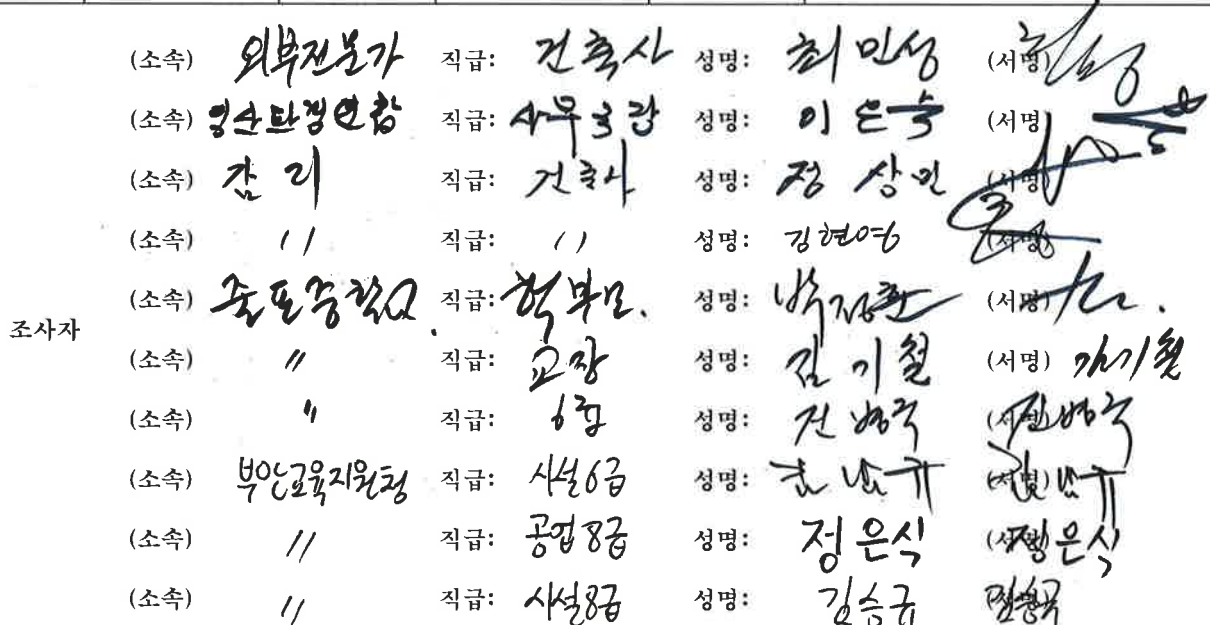 (소속) 외부전문가 직급: 건축사 성명: 최민성 (서명)
(소속) 직급: 사무국장 성명: 이은숙 (서명)
(소속) 감리 직급: 건축사 성명: 정상민 (서명)
(소속) 〃 직급: 〃 성명: 김현영 (서명)
(소속) 줄포중학교. 직급: 학부모. 성명: 박정환 (서명)
조사자
(소속) 〃 직급: 교장 성명: 김기철 (서명) 김기철
(소속) 〃 직급: 6급 성명: 전병국 (서명) 전병국
(소속) 부안교육지원청 직급: 시설6급 성명: (서명)
(소속) 〃 직급: 공업8급 성명: 정은식 (서명) 정은식
(소속) 〃 직급: 시설8급 성명: 김승규